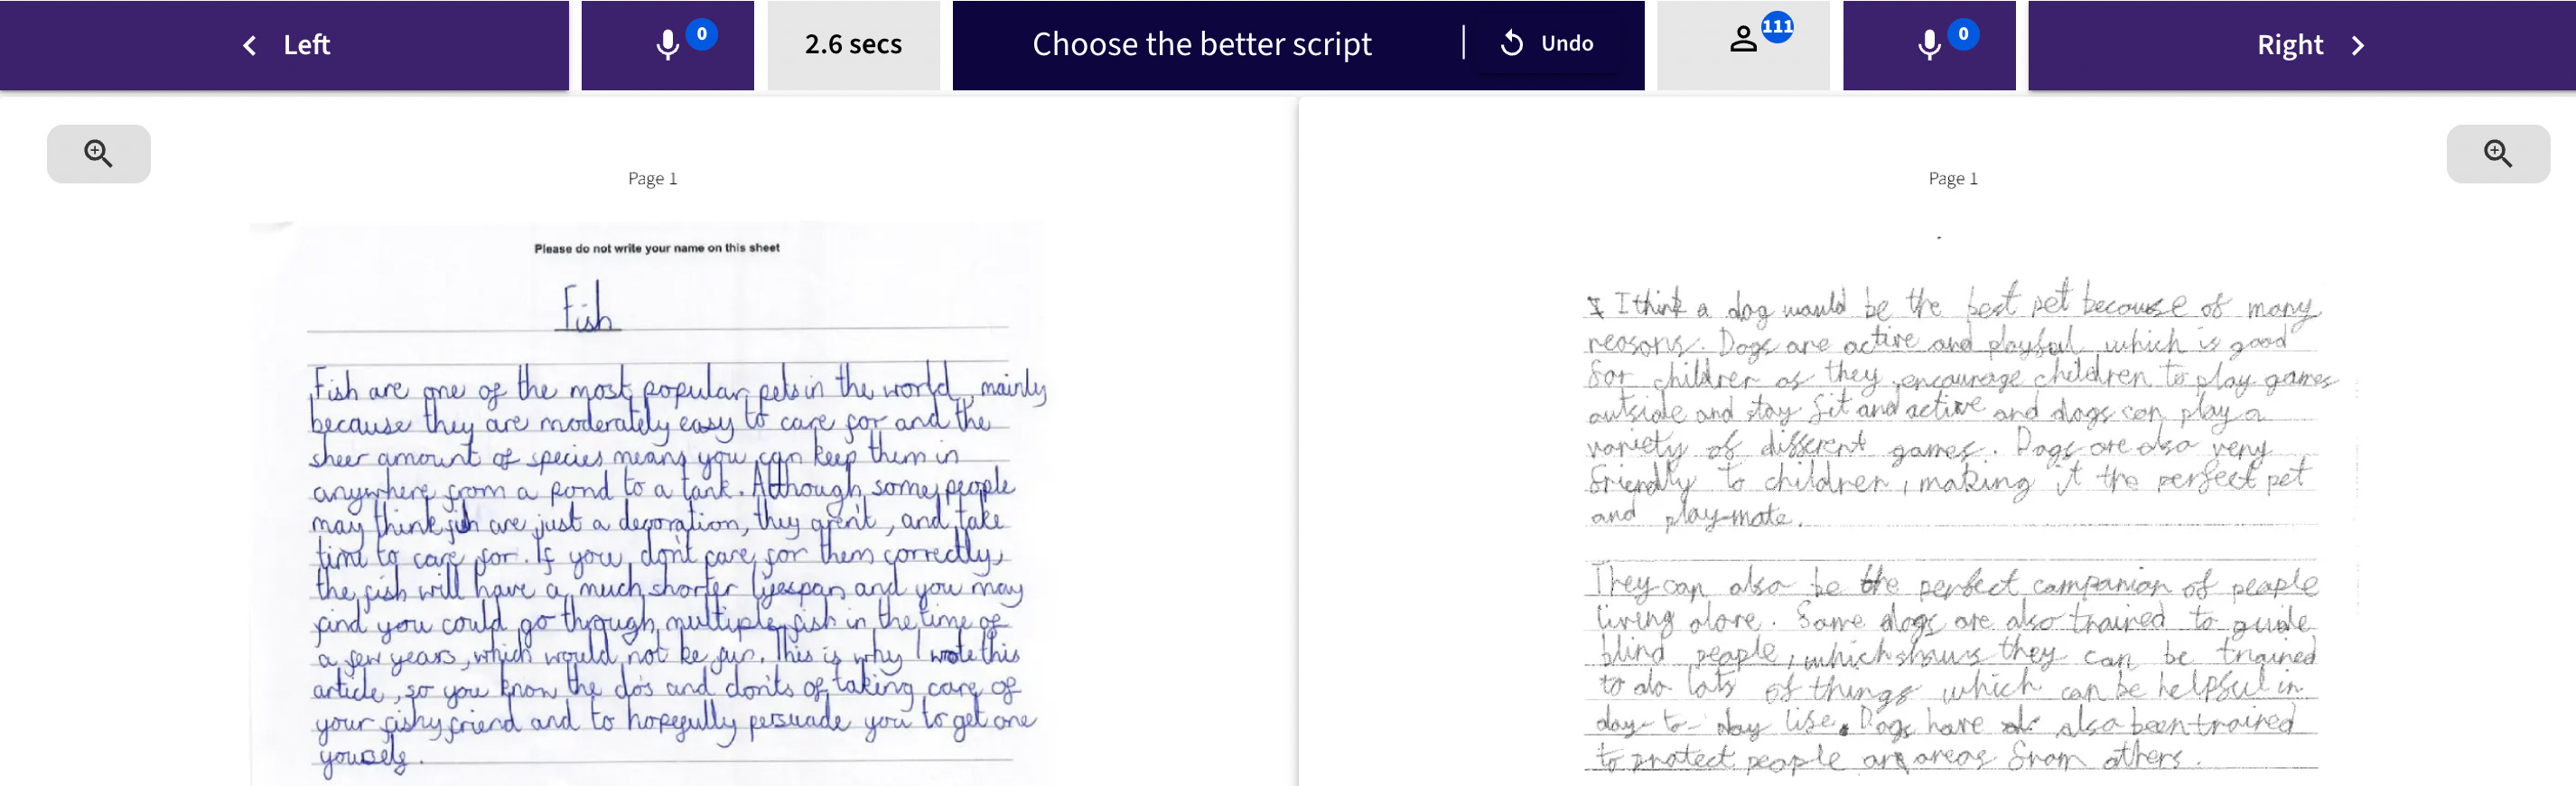 Left
0
2.6 secs
Choose the better script
Undo
111
0
Right
Page 1
Please do not write your name on this sheet
Fish
Fish are one of the most popular pets in the world, mainly
because they are moderately easy to care for and the
sheer amount of species means you can keep them in
anywhere from a pond to a tank. Although some people
may think fish are just a decoration, they aren't, and take
time to care for. If you don't care for them correctly,
the fish will have a much shorter lifespan and you may
find you could go through multiple fish in the time of
a few years, which would not be fun. This is why I wrote this
article, so you know the do's and don'ts of taking care of
your fishy friend and to hopefully persuade you to get one
yourself.
Page 1
I think a dog would be the best pet because of many
reasons. Dogs are active and playful which is good
for children as they encourage children to play games
outside and stay fit and active and dogs can play a
variety of different games. Dogs are also very
friendly to children, making it the perfect pet
and play-mate.
They can also be the perfect companion of people
living alone. Some dogs are also trained to guide
blind people, which shows they can be trained
to do lots of things which can be helpful in
day-to-day life. Dogs have also been trained
to protect people and areas from others.